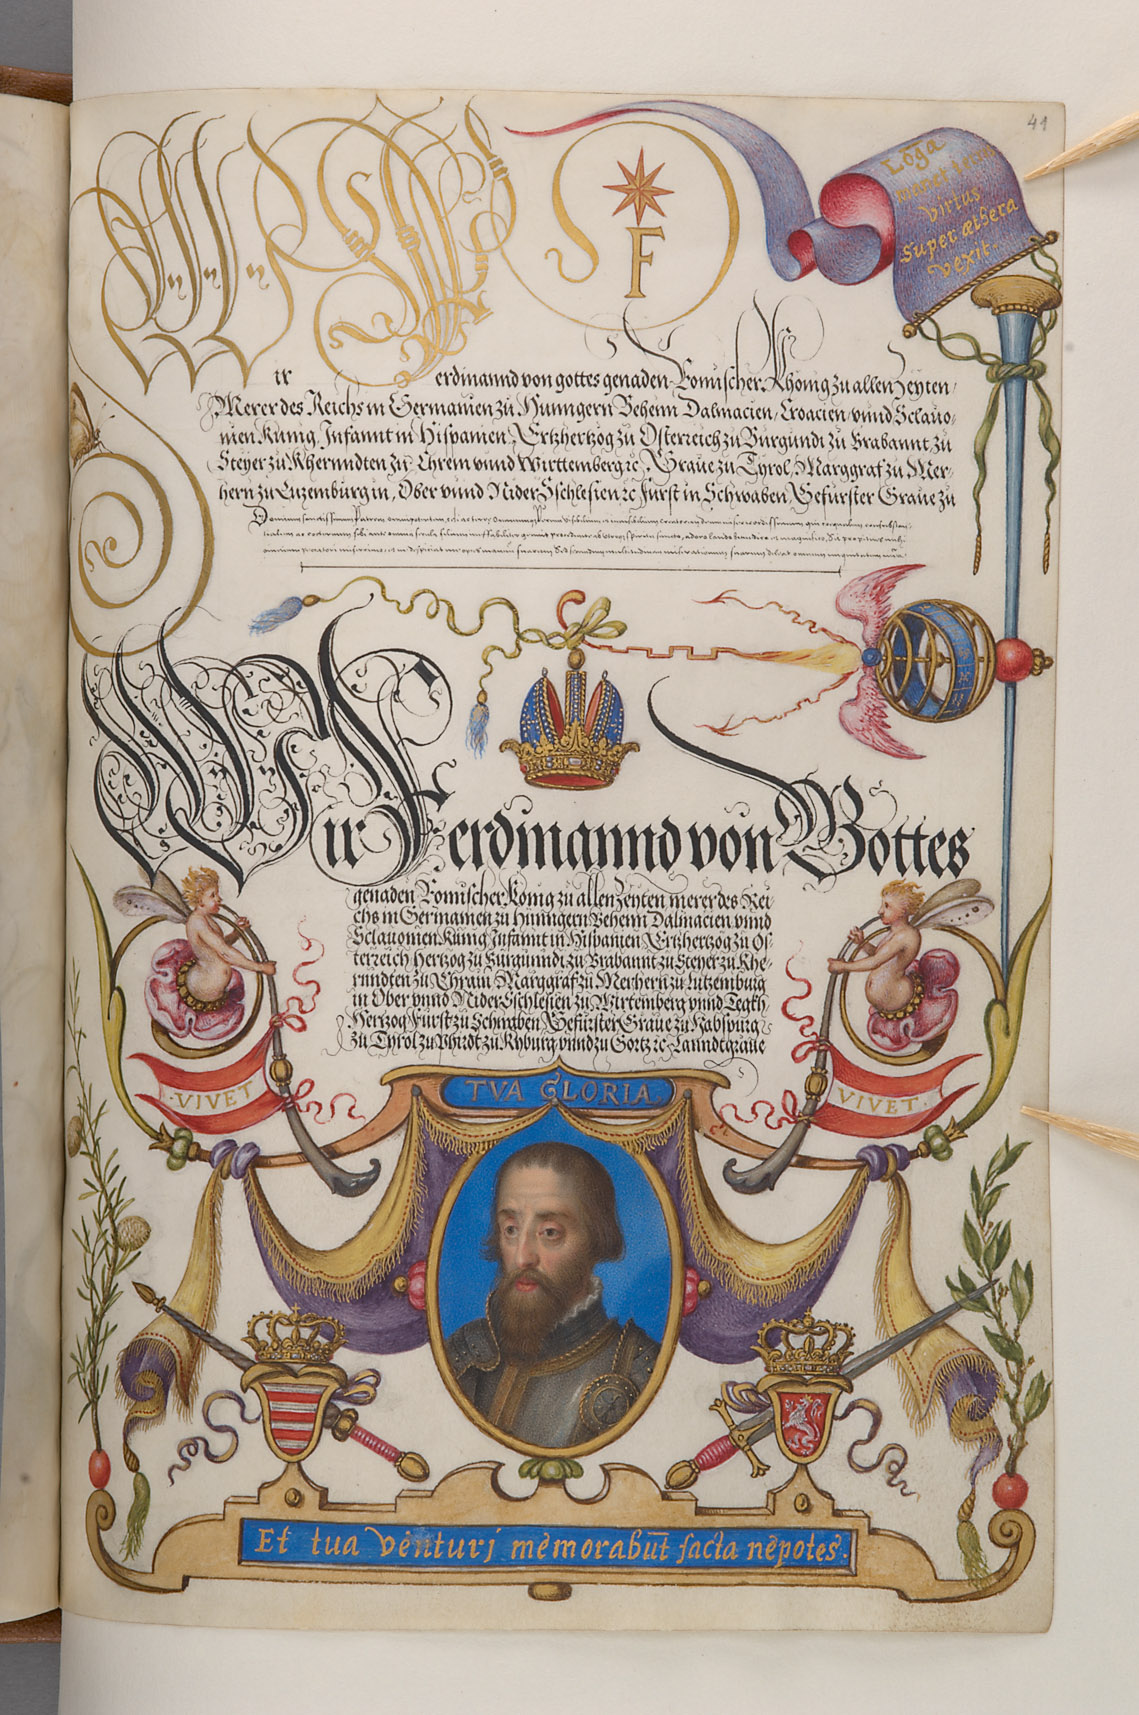 41
Lõga
manet
virtus
super æthera
vexit.
F
Wir Ferdinannd von gottes genaden Romischer Khönig zu allen Zeyten /
Merer des Reichs in Germanien zu Hunngern Behenn Dalmacien / Croacien / vnnd Sclauo-
nien Kunig, Infannt in Hispanien, Ertzhertzog zu Osterreich zu Burgundi zu Brabannt zu
Steyer zu Khernndten zu Chrein vnnd Wirttemberg ꝛc, Graue zu Tyrol, Marggraf zu Mer-
hern zu Luzemburg in, Ober vnnd Nider Sschlesien ꝛc Furst in Schwaben Gefurster Graue zu
Wir Ferdinannd von Gottes
genaden Romischer Konig zu allen Zeyten merer des Rei
chs in Germanien zu Hunngern Behenn Dalmacien vnnd
Sclauonien Kunig Infannt in Hispanien Ertzhertzog zu Os-
terreich Hertzog zu Burgunndi zu Brabannt zu Steyer zu Khe-
rnndten zu Chrain Marggraf zu Merhern zu Lutzemburg
in Ober vnnd Nider Sschlesien zu Wirtemberg vnnd Teckh
Hertzog Furst zu Schwaben Gefurster Graue zu Habspurg
zu Tyrol zu Phirdt zu Kyburg vnnd zu Gortz ꝛc Lanndtgraue
TVA GLORIA.
·VIVET·
VIVET·
Et tua venturi memorabūt facta nepotes.